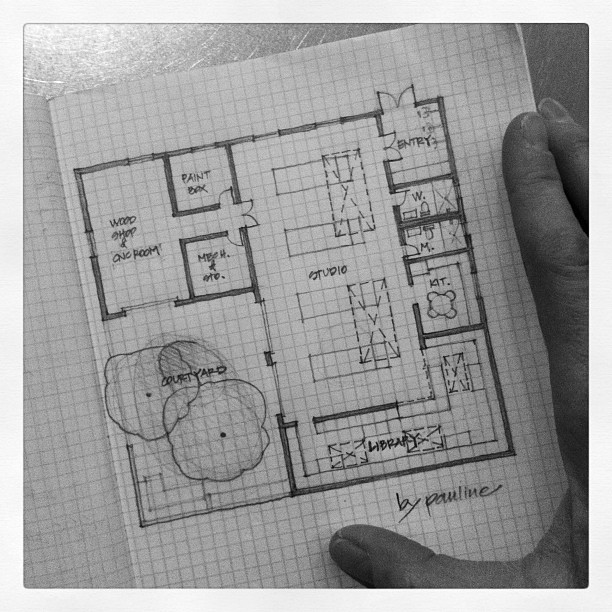 ENTRY
PAINT
BOX
W.
WOOD
SHOP
&
CNC ROOM
M.
MECH.
&
STO.
STUDIO
KIT.
COURTYARD
LIBRARY
by pauline